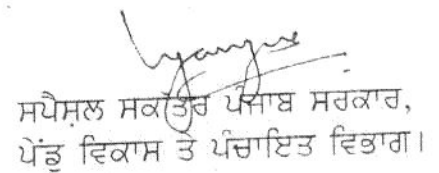 ਸਪੈਸ਼ਲ ਸਕੱਤਰ ਪੰਜਾਬ ਸਰਕਾਰ,
ਪੇਂਡੂ ਵਿਕਾਸ ਤੇ ਪੰਚਾਇਤ ਵਿਭਾਗ।